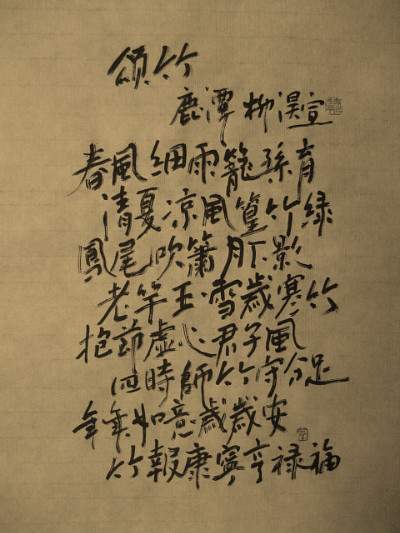 頌竹
鹿潭 柳淏宣
春風細雨籠孫育
清夏凉風篁竹緑
鳳尾吹簫月下影
老竿玉雪歲寒竹
抱節虛心君子風
四時師竹守分足
年年如意歲歲安
竹報康寧亨禄福